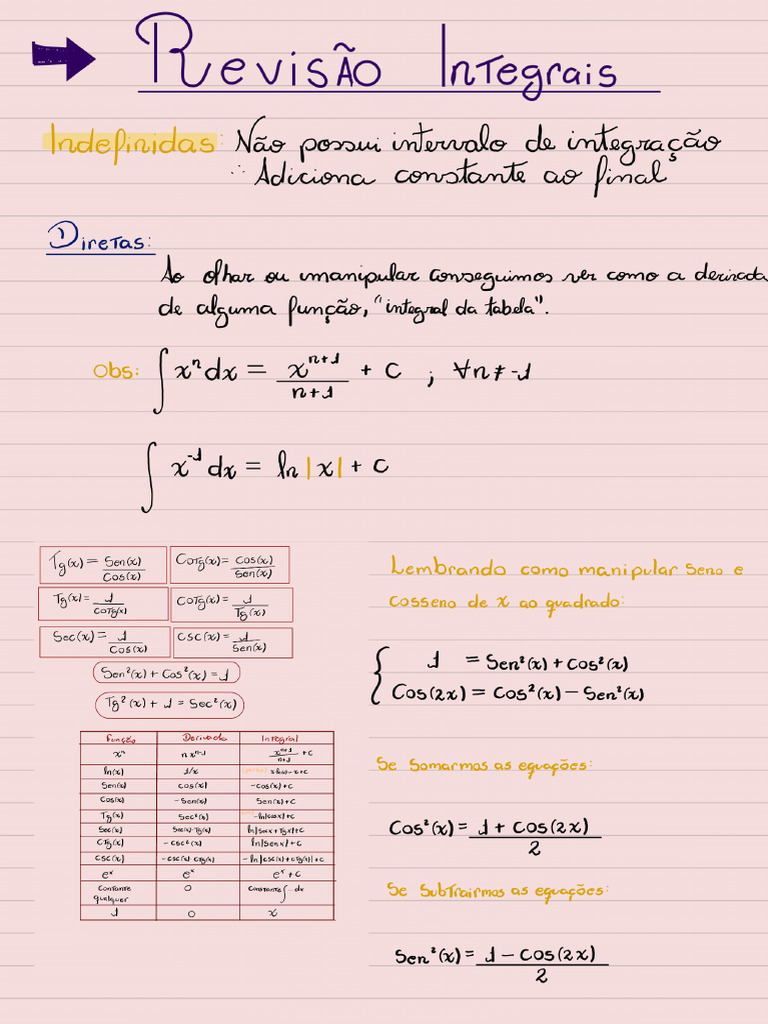 Revisão Integrais
Indefinidas: Não possui intervalo de integração
∴ Adiciona constante ao final
Diretas:
Ao olhar ou manipular conseguimos ver como a derivada
de alguma função, "integral da tabela".
Obs: ∫ xⁿ dx = xⁿ⁺¹/(n+1) + C ; ∀n ≠ -1
∫ x⁻¹ dx = ln|x| + C
Tg(x) = Sen(x)/Cos(x)
Cotg(x) = Cos(x)/Sen(x)
Tg(x) = 1/Cotg(x)
Cotg(x) = 1/Tg(x)
Sec(x) = 1/Cos(x)
Csc(x) = 1/Sen(x)
Sen²(x) + Cos²(x) = 1
Tg²(x) + 1 = Sec²(x)
Função Derivada Integral
xⁿ n xⁿ⁻¹ xⁿ⁺¹/(n+1) + C
ln(x) 1/x x - x + C
Sen(x) cos(x) -cos(x) + C
Cos(x) -Sen(x) Sen(x) + C
Tg(x) Sec²(x) -ln|cosx| + C
Sec(x) Sec(x)·Tg(x) ln|Secx + Tgx| + C
CTg(x) -csc²(x) ln|Senx| + C
csc(x) -csc(x)·CTg(x) -ln|csc(x) + CTg(x)| + C
eˣ eˣ eˣ + C
Constante qualquer 0 Constante ∫ dx
1 0 x
Lembrando como manipular Seno e
cosseno de x ao quadrado:
{ 1 = Sen²(x) + Cos²(x)
Cos(2x) = Cos²(x) - Sen²(x)
Se Somarmos as equações:
Cos²(x) = (1 + Cos(2x))/2
Se Subtrairmos as equações:
Sen²(x) = (1 - Cos(2x))/2